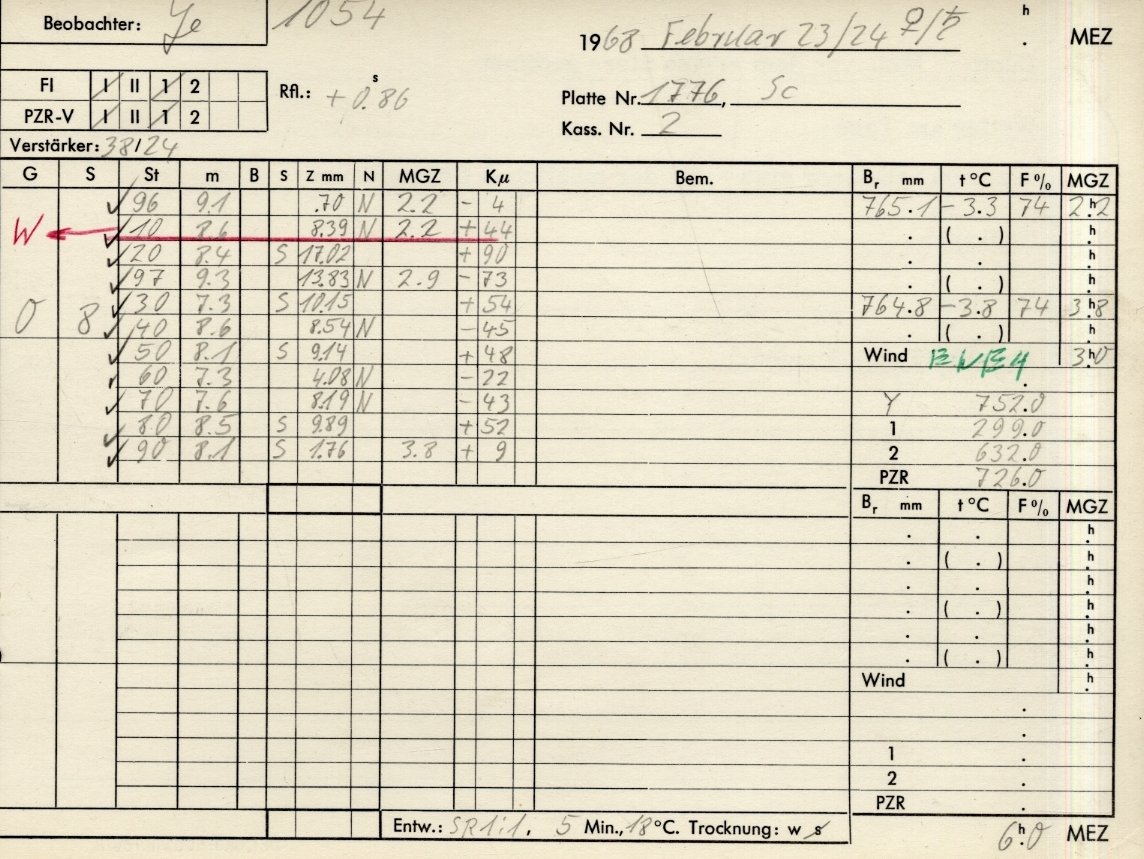 Beobachter: Je 1054
1968 Februar 23/24 ♀/♄ h . MEZ
FI I II 1 2
PZR-V I II 1 2
Rfl.: +0.86 s
Platte Nr. 1776, Sc
Kass. Nr. 2
Verstärker: 38/24
G S St m B S Z mm N MGZ Kμ Bem. Br mm t°C F% MGZ
96 9.1 .70 N 2.2 - 4 765.1 -3.3 74 2.2 h
W 10 8.6 8.39 N 2.2 + 44 ( . ) h
20 8.4 S 17.02 + 90 . . h
97 9.3 13.83 N 2.9 - 73 . ( . ) h
O 8 30 7.3 S 10.15 + 54 764.8 -3.8 74 3.8 h
40 8.6 8.54 N - 45 . ( . ) h
50 8.1 S 9.14 + 48 Wind 3.0 h
60 7.3 4.08 N - 22 .
70 7.6 8.19 N - 43 Y 752.0
80 8.5 S 9.89 + 52 1 299.0
90 8.1 S 1.76 3.8 + 9 2 632.0
PZR 726.0
Br mm t°C F% MGZ
. . h
. ( . ) h
. . h
. ( . ) h
. . h
. ( . ) h
Wind h
.
.
1 .
2 .
PZR .
Entw.: SR1:1, 5 Min., 18°C. Trocknung: w s 6.0 h MEZ